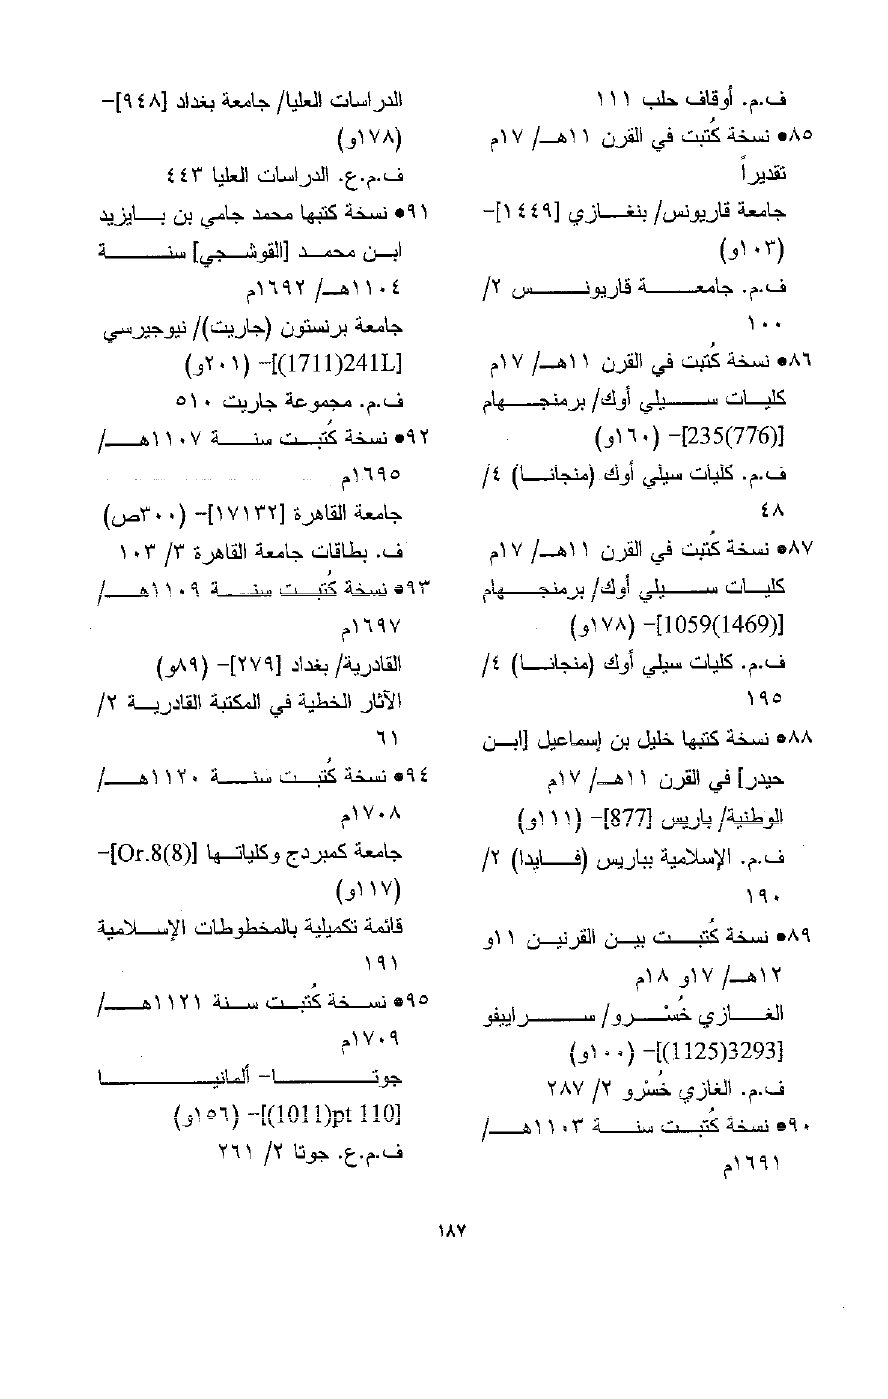 ف.م. أوقاف حلب ١١١
٨٥• نسخة كُتبت في القرن ١١هـ/ ١٧م
تقديراً
جامعة قاريونس/ بنغازي [١٤٤٩]-
(١٠٣و)
ف.م. جامعة قاريونس ٢/
١٠٠
٨٦• نسخة كُتبت في القرن ١١هـ/ ١٧م
كليات سيلي أوك/ برمنجهام
[235(776)]- (١٦٠و)
ف.م. كليات سيلي أوك (منجانا) ٤/
٤٨
٨٧• نسخة كُتبت في القرن ١١هـ/ ١٧م
كليات سيلي أوك/ برمنجهام
[1059(1469)]- (١٧٨و)
ف.م. كليات سيلي أوك (منجانا) ٤/
١٩٥
٨٨• نسخة كتبها خليل بن إسماعيل [ابن
حيدر] في القرن ١١هـ/ ١٧م
الوطنية/ باريس [877]- (١١١و)
ف.م. الإسلامية بباريس (فايدا) ٢/
١٩٠
٨٩• نسخة كُتبت بين القرنين ١١و
١٢هـ/ ١٧و ١٨م
الغازي خُسْرو/ سراييفو
[3293(1125)]- (١٠٠و)
ف.م. الغازي خُسْرو ٢/ ٢٨٧
٩٠• نسخة كُتبت سنة ١١٠٣هـ/
١٦٩١م
الدراسات العليا/ جامعة بغداد [٩٤٨]-
(١٧٨و)
ف.م.ع. الدراسات العليا ٤٤٣
٩١• نسخة كتبها محمد جامي بن بايزيد
ابن محمد [القوشجي] سنة
١١٠٤هـ/ ١٦٩٢م
جامعة برنستون (جاريت)/ نيوجيرسي
[241L(1711)]- (٢٠١و)
ف.م. مجموعة جاريت ٥١٠
٩٢• نسخة كُتبت سنة ١١٠٧هـ/
١٦٩٥م
جامعة القاهرة [١٧١٣٢]- (٣٠٠ص)
ف. بطاقات جامعة القاهرة ٣/ ١٠٣
٩٣• نسخة كُتبت سنة ١١٠٩هـ/
١٦٩٧م
القادرية/ بغداد [٢٧٩]- (٨٩و)
الآثار الخطية في المكتبة القادرية ٢/
٦١
٩٤• نسخة كُتبت سنة ١١٢٠هـ/
١٧٠٨م
جامعة كمبردج وكلياتها [Or.8(8)]-
(١١٧و)
قائمة تكميلية بالمخطوطات الإسلامية
١٩١
٩٥• نسخة كُتبت سنة ١١٢١هـ/
١٧٠٩م
جوتا- ألمانيا
[pt 110(1011)]- (١٥٦و)
ف.م.ع. جوتا ٢/ ٢٦١
١٨٧